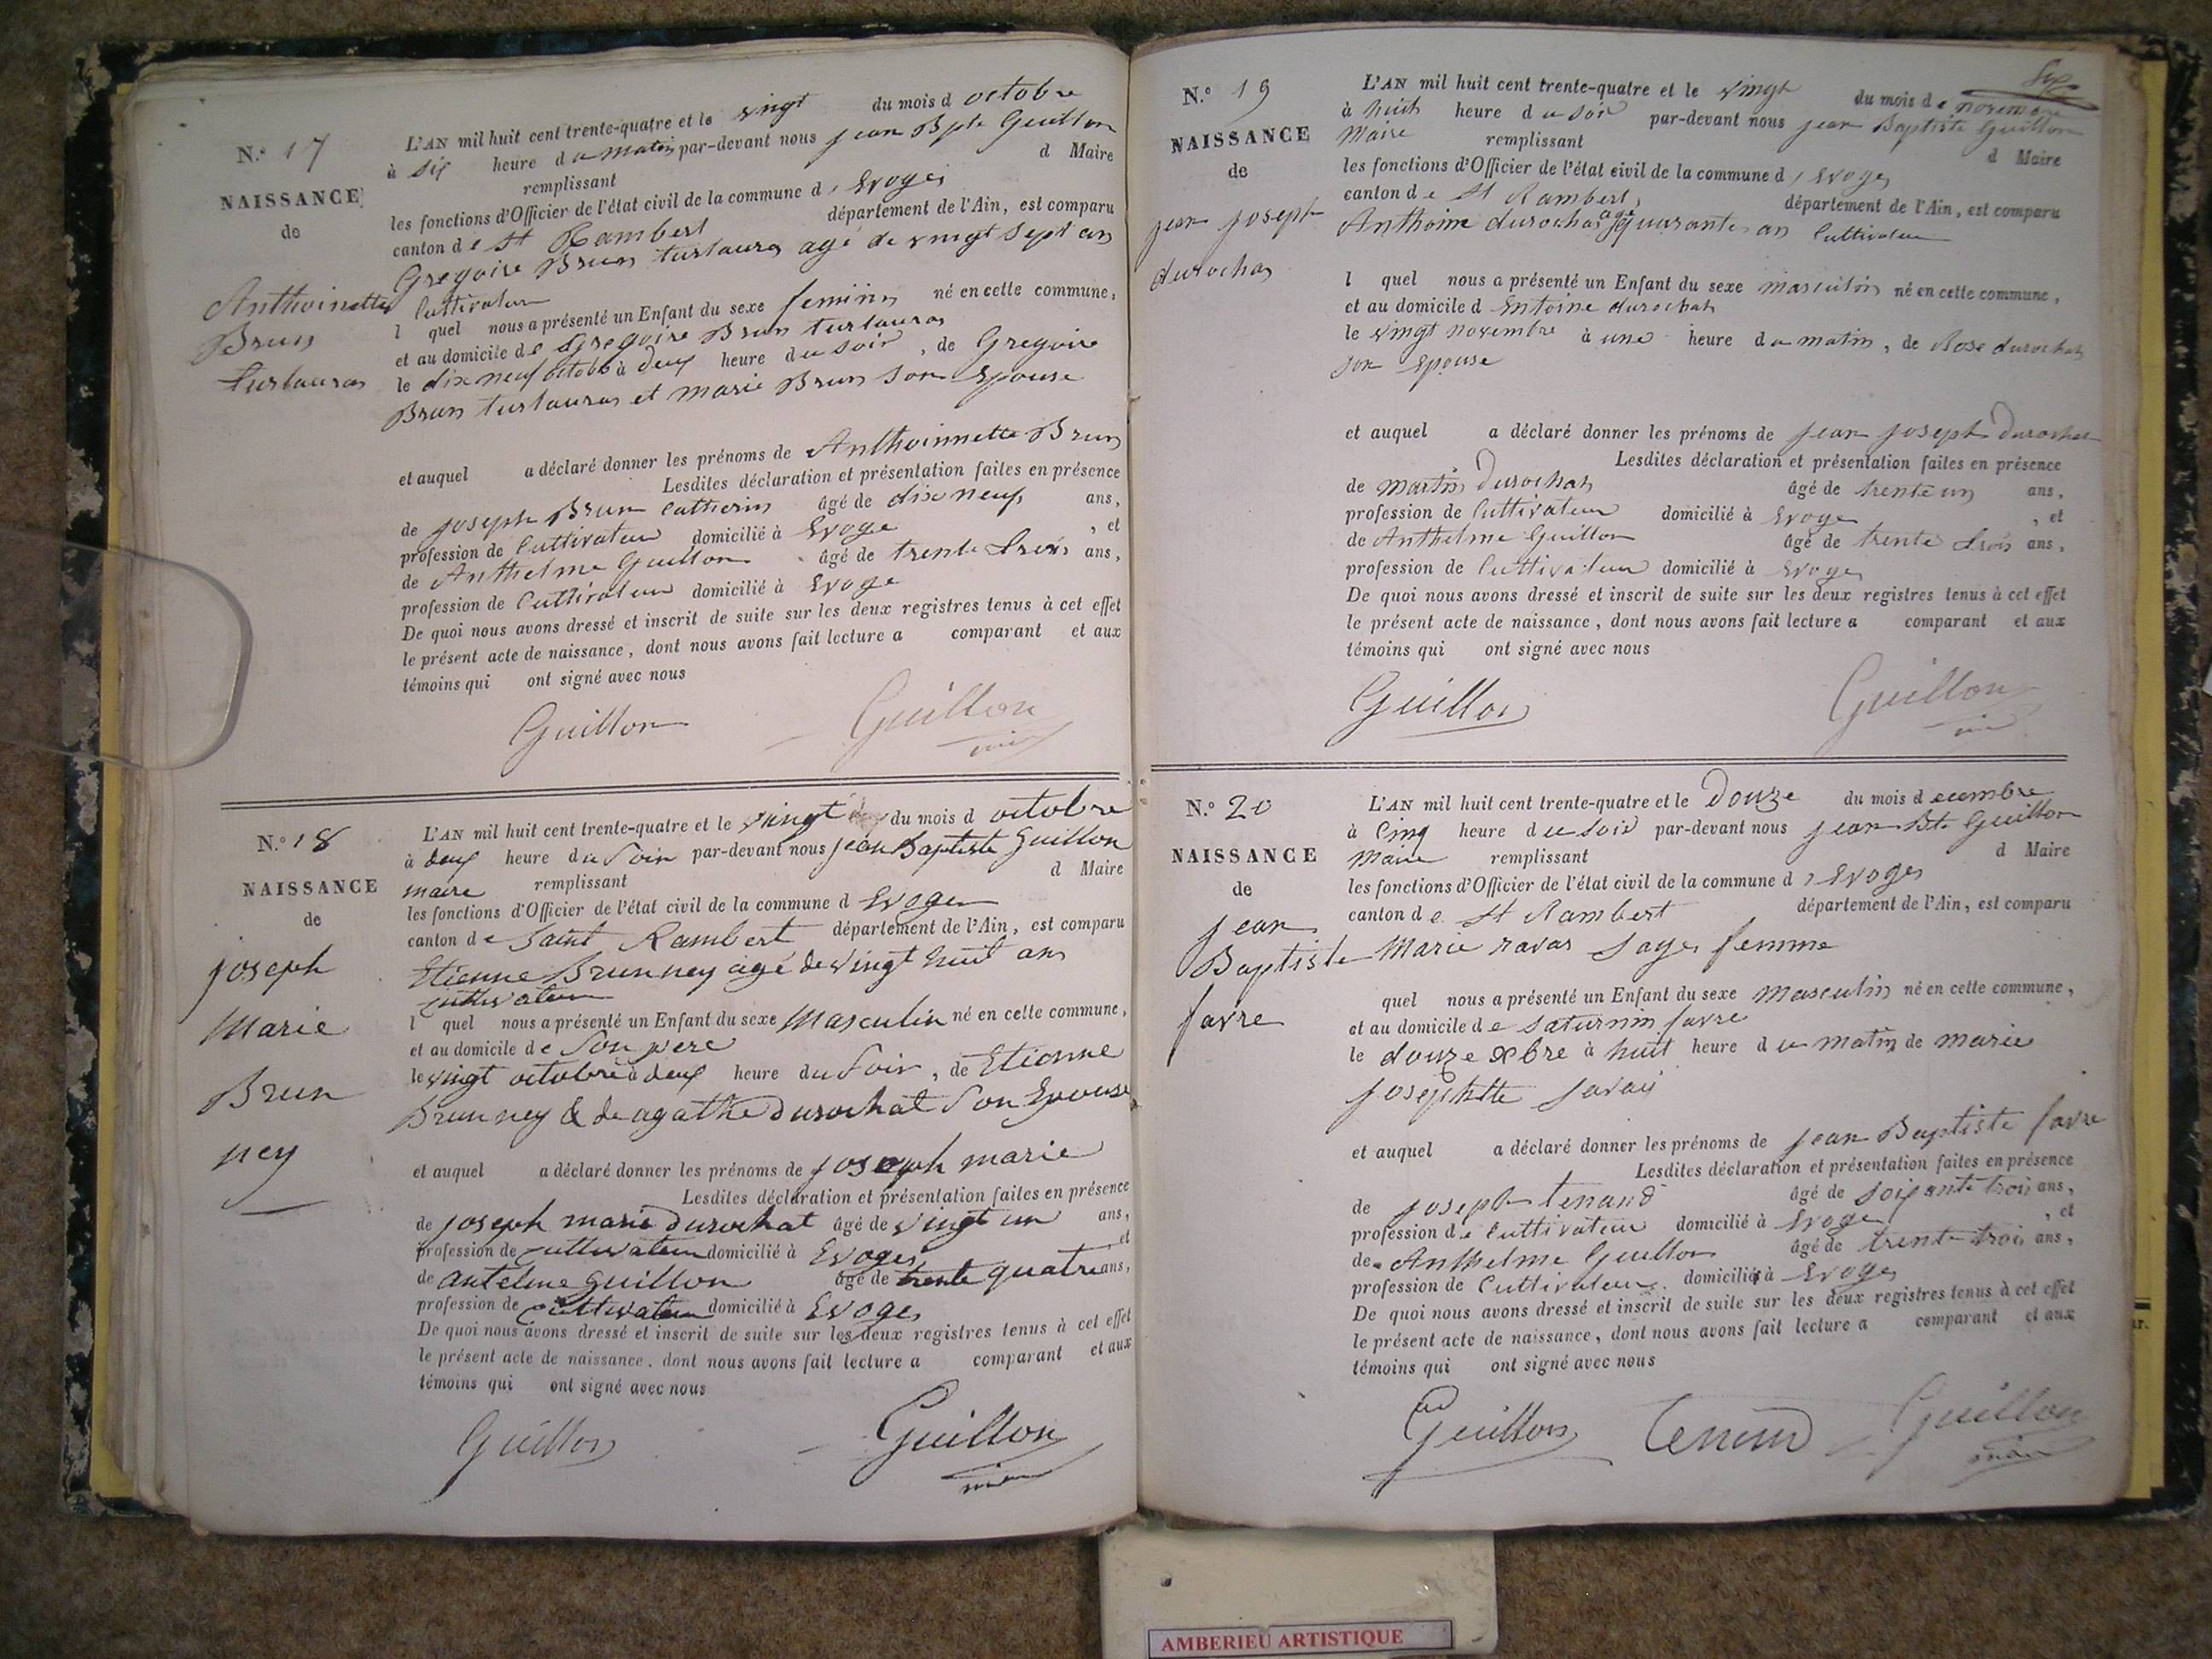 N.° 17
NAISSANCE
de
Anthoinette
Brun
turlauras
L'AN mil huit cent trente-quatre et le vingt du mois d octobre
à six heure du matin par-devant nous jean Bpte Guillon
remplissant d Maire
les fonctions d'Officier de l'état civil de la commune d Evoges
canton de St Rambert département de l'Ain, est comparu
Gregoire Brun turlauras agé de vingt sept ans
Cultivateur
l quel nous a présenté un Enfant du sexe feminin né en cette commune,
et au domicile de Gregoire Brun turlauras
le dix neuf octob à deux heure du soir, de Gregoire
Brun turlauras et marie Brun son Epouse
et auquel a déclaré donner les prénoms de Anthoinnette Brun
Lesdites déclaration et présentation faites en présence
de joseph Brun Cathérin âgé de dix neuf ans,
profession de Cultivateur domicilié à Evoge, et
de Anthelme Guillon âgé de trente trois ans,
profession de Cultivateur domicilié à Evoge
De quoi nous avons dressé et inscrit de suite sur les deux registres tenus à cet effet
le présent acte de naissance, dont nous avons fait lecture a comparant et aux
témoins qui ont signé avec nous
Guillon Guillon
N.° 18
NAISSANCE
de
joseph
Marie
Brun
ney
L'AN mil huit cent trente-quatre et le vingt du mois d octobre
à deux heure du Soir par-devant nous jean Baptiste Guillon
maire remplissant d Maire
les fonctions d'Officier de l'état civil de la commune d Evoges
canton de Saint Rambert département de l'Ain, est comparu
Etienne Brun ney agé de vingt huit ans
cultivateur
l quel nous a présenté un Enfant du sexe Masculin né en cette commune,
et au domicile de Son pere
le vingt octobre à deux heure du Soir, de Etienne
Brun ney & de agathe durochat Son Epouse
et auquel a déclaré donner les prénoms de joseph marie
Lesdites déclaration et présentation faites en présence
de joseph marie durochat âgé de vingt un ans,
profession de cultivateur domicilié à Evoges, et
de antelme guillon âgé de trente quatre ans,
profession de cultivateur domicilié à Evoges
De quoi nous avons dressé et inscrit de suite sur les deux registres tenus à cet effet
le présent acte de naissance, dont nous avons fait lecture a comparant et aux
témoins qui ont signé avec nous
Guillon Guillon
Six
N.° 19
NAISSANCE
de
jean joseph
durochas
L'AN mil huit cent trente-quatre et le vingt du mois de novembre
à huit heure du soir par-devant nous jean Baptiste Guillon
Maire remplissant d Maire
les fonctions d'Officier de l'état civil de la commune d Evoges
canton de St Rambert, département de l'Ain, est comparu
Anthoine durochas agé quarante an Cultivateur
l quel nous a présenté un Enfant du sexe masculin né en cette commune,
et au domicile d Entoine durochas
le vingt novembre à une heure du matin, de Rose durochas
son Epouse
et auquel a déclaré donner les prénoms de jean joseph Durochas
Lesdites déclaration et présentation faites en présence
de martin Durochas âgé de trente un ans,
profession de Cultivateur domicilié à Evoge, et
de Anthelme Guillon âgé de trente trois ans,
profession de Cultivateur domicilié à Evoges
De quoi nous avons dressé et inscrit de suite sur les deux registres tenus à cet effet
le présent acte de naissance, dont nous avons fait lecture a comparant et aux
témoins qui ont signé avec nous
Guillon Guillon
N.° 20
NAISSANCE
de
jean
Baptiste
favre
L'AN mil huit cent trente-quatre et le Douze du mois d ecembre
à Cinq heure du soir par-devant nous jean Bte Guillon
Maire remplissant d Maire
les fonctions d'Officier de l'état civil de la commune d Evoges
canton de St Rambert département de l'Ain, est comparu
Marie ravas sage femme
quel nous a présenté un Enfant du sexe masculin né en cette commune,
et au domicile de saturnin favre
le douze Xbre à huit heure du matin, de marie
josephtte
et auquel a déclaré donner les prénoms de jean Baptiste favre
Lesdites déclaration et présentation faites en présence
de joseph tenand âgé de soixante trois ans,
profession de Cultivateur domicilié à Evoge, et
de Anthelme Guillon âgé de trente trois ans,
profession de Cultivateur domicilié à Evoges
De quoi nous avons dressé et inscrit de suite sur les deux registres tenus à cet effet
le présent acte de naissance, dont nous avons fait lecture a comparant et aux
témoins qui ont signé avec nous
Guillon Guillon
AMBERIEU ARTISTIQUE